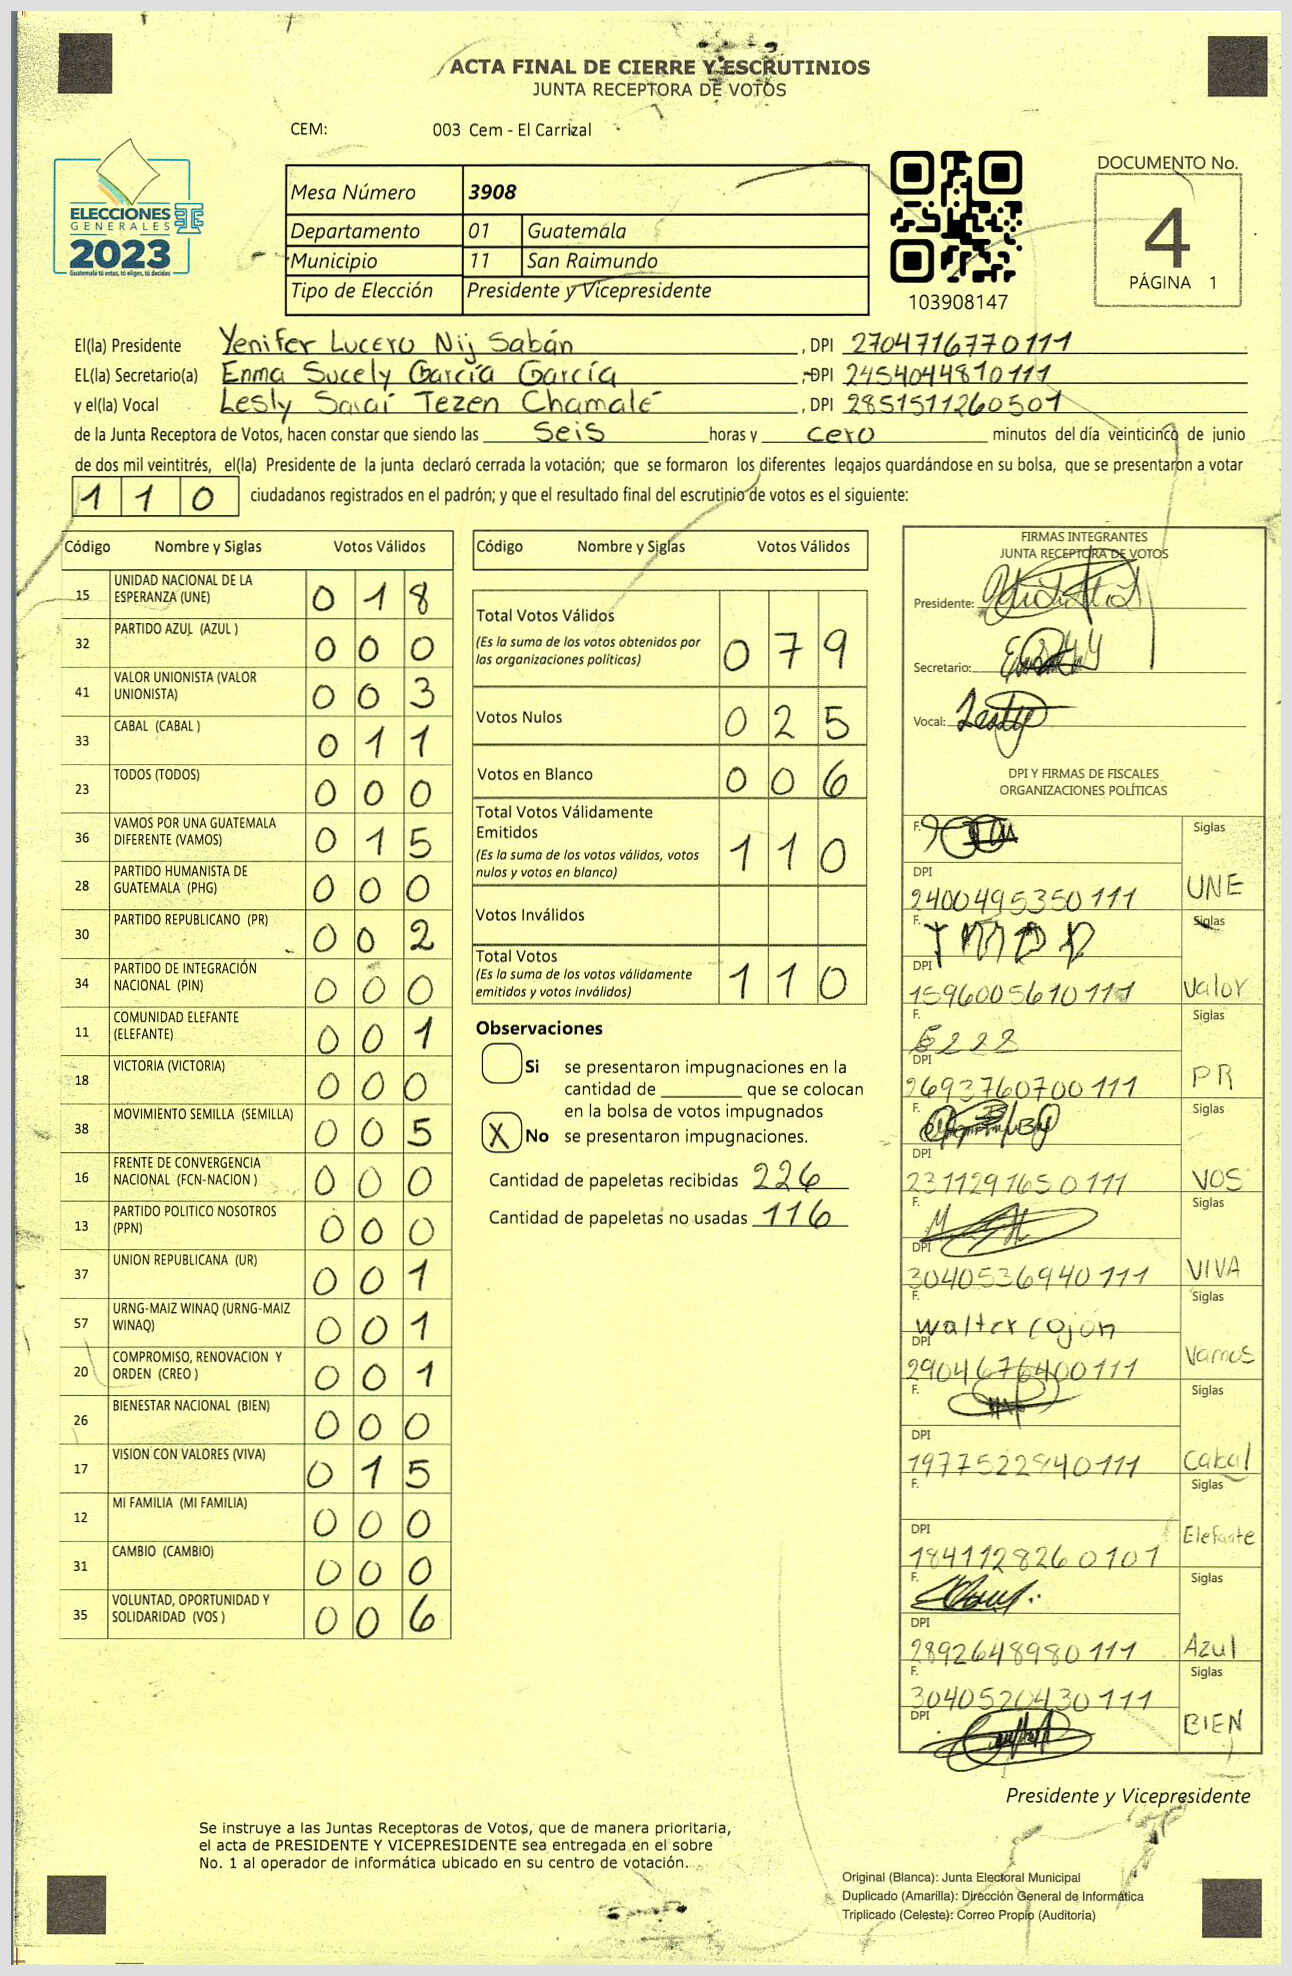 ACTA FINAL DE CIERRE Y ESCRUTINIOS
JUNTA RECEPTORA DE VOTOS
CEM: 003 Cem - El Carrizal
ELECCIONES
GENERALES
2023
Guatemala tú votas, tú eliges, tú decides
Mesa Número 3908
Departamento 01 Guatemala
Municipio 11 San Raimundo
Tipo de Elección Presidente y Vicepresidente
103908147
DOCUMENTO No.
4
PÁGINA 1
El(la) Presidente Yenifer Lucero Nij Sabán , DPI 2704716770111
EL(la) Secretario(a) Enma Sucely García García , DPI 2454044810111
y el(la) Vocal Lesly Saraí Tezen Chamalé , DPI 2851511260501
de la Junta Receptora de Votos, hacen constar que siendo las seis horas y cero minutos del día veinticinco de junio
de dos mil veintitrés, el(la) Presidente de la junta declaró cerrada la votación; que se formaron los diferentes legajos guardándose en su bolsa, que se presentaron a votar
110 ciudadanos registrados en el padrón; y que el resultado final del escrutinio de votos es el siguiente:
Código Nombre y Siglas Votos Válidos
15 UNIDAD NACIONAL DE LA ESPERANZA (UNE) 018
32 PARTIDO AZUL (AZUL ) 000
41 VALOR UNIONISTA (VALOR UNIONISTA) 003
33 CABAL (CABAL ) 011
23 TODOS (TODOS) 000
36 VAMOS POR UNA GUATEMALA DIFERENTE (VAMOS) 015
28 PARTIDO HUMANISTA DE GUATEMALA (PHG) 000
30 PARTIDO REPUBLICANO (PR) 002
34 PARTIDO DE INTEGRACIÓN NACIONAL (PIN) 000
11 COMUNIDAD ELEFANTE (ELEFANTE) 001
18 VICTORIA (VICTORIA) 000
38 MOVIMIENTO SEMILLA (SEMILLA) 005
16 FRENTE DE CONVERGENCIA NACIONAL (FCN-NACION ) 000
13 PARTIDO POLITICO NOSOTROS (PPN) 000
37 UNION REPUBLICANA (UR) 001
57 URNG-MAIZ WINAQ (URNG-MAIZ WINAQ) 001
20 COMPROMISO, RENOVACION Y ORDEN (CREO ) 001
26 BIENESTAR NACIONAL (BIEN) 000
17 VISION CON VALORES (VIVA) 015
12 MI FAMILIA (MI FAMILIA) 000
31 CAMBIO (CAMBIO) 000
35 VOLUNTAD, OPORTUNIDAD Y SOLIDARIDAD (VOS ) 006
Código Nombre y Siglas Votos Válidos
Total Votos Válidos
(Es la suma de los votos obtenidos por
las organizaciones políticas) 079
Votos Nulos 025
Votos en Blanco 006
Total Votos Válidamente
Emitidos
(Es la suma de los votos válidos, votos
nulos y votos en blanco) 110
Votos Inválidos
Total Votos
(Es la suma de los votos válidamente
emitidos y votos inválidos) 110
Observaciones
Si se presentaron impugnaciones en la
cantidad de ________ que se colocan
en la bolsa de votos impugnados
X No se presentaron impugnaciones.
Cantidad de papeletas recibidas 226
Cantidad de papeletas no usadas 116
FIRMAS INTEGRANTES
JUNTA RECEPTORA DE VOTOS
Presidente:
Secretario:
Vocal: Lesly
DPI Y FIRMAS DE FISCALES
ORGANIZACIONES POLÍTICAS
F. Siglas
DPI 2400495350111 UNE
F. Siglas
DPI 1596005610111 Valor
F. Siglas
DPI 2693760700111 PR
F. Siglas
DPI 2311291650111 VOS
F. Siglas
DPI 3040536940111 VIVA
F. walter cojon Siglas
DPI 2904676400111 Vamos
F. Siglas
DPI 1977522940111 Cabal
F. Siglas
DPI 1841128260101 Elefante
F. Siglas
DPI 2892648980111 Azul
F. 3040520430111 Siglas
DPI BIEN
Presidente y Vicepresidente
Se instruye a las Juntas Receptoras de Votos, que de manera prioritaria,
el acta de PRESIDENTE Y VICEPRESIDENTE sea entregada en el sobre
No. 1 al operador de informática ubicado en su centro de votación.
Original (Blanca): Junta Electoral Municipal
Duplicado (Amarilla): Dirección General de Informática
Triplicado (Celeste): Correo Propio (Auditoría)